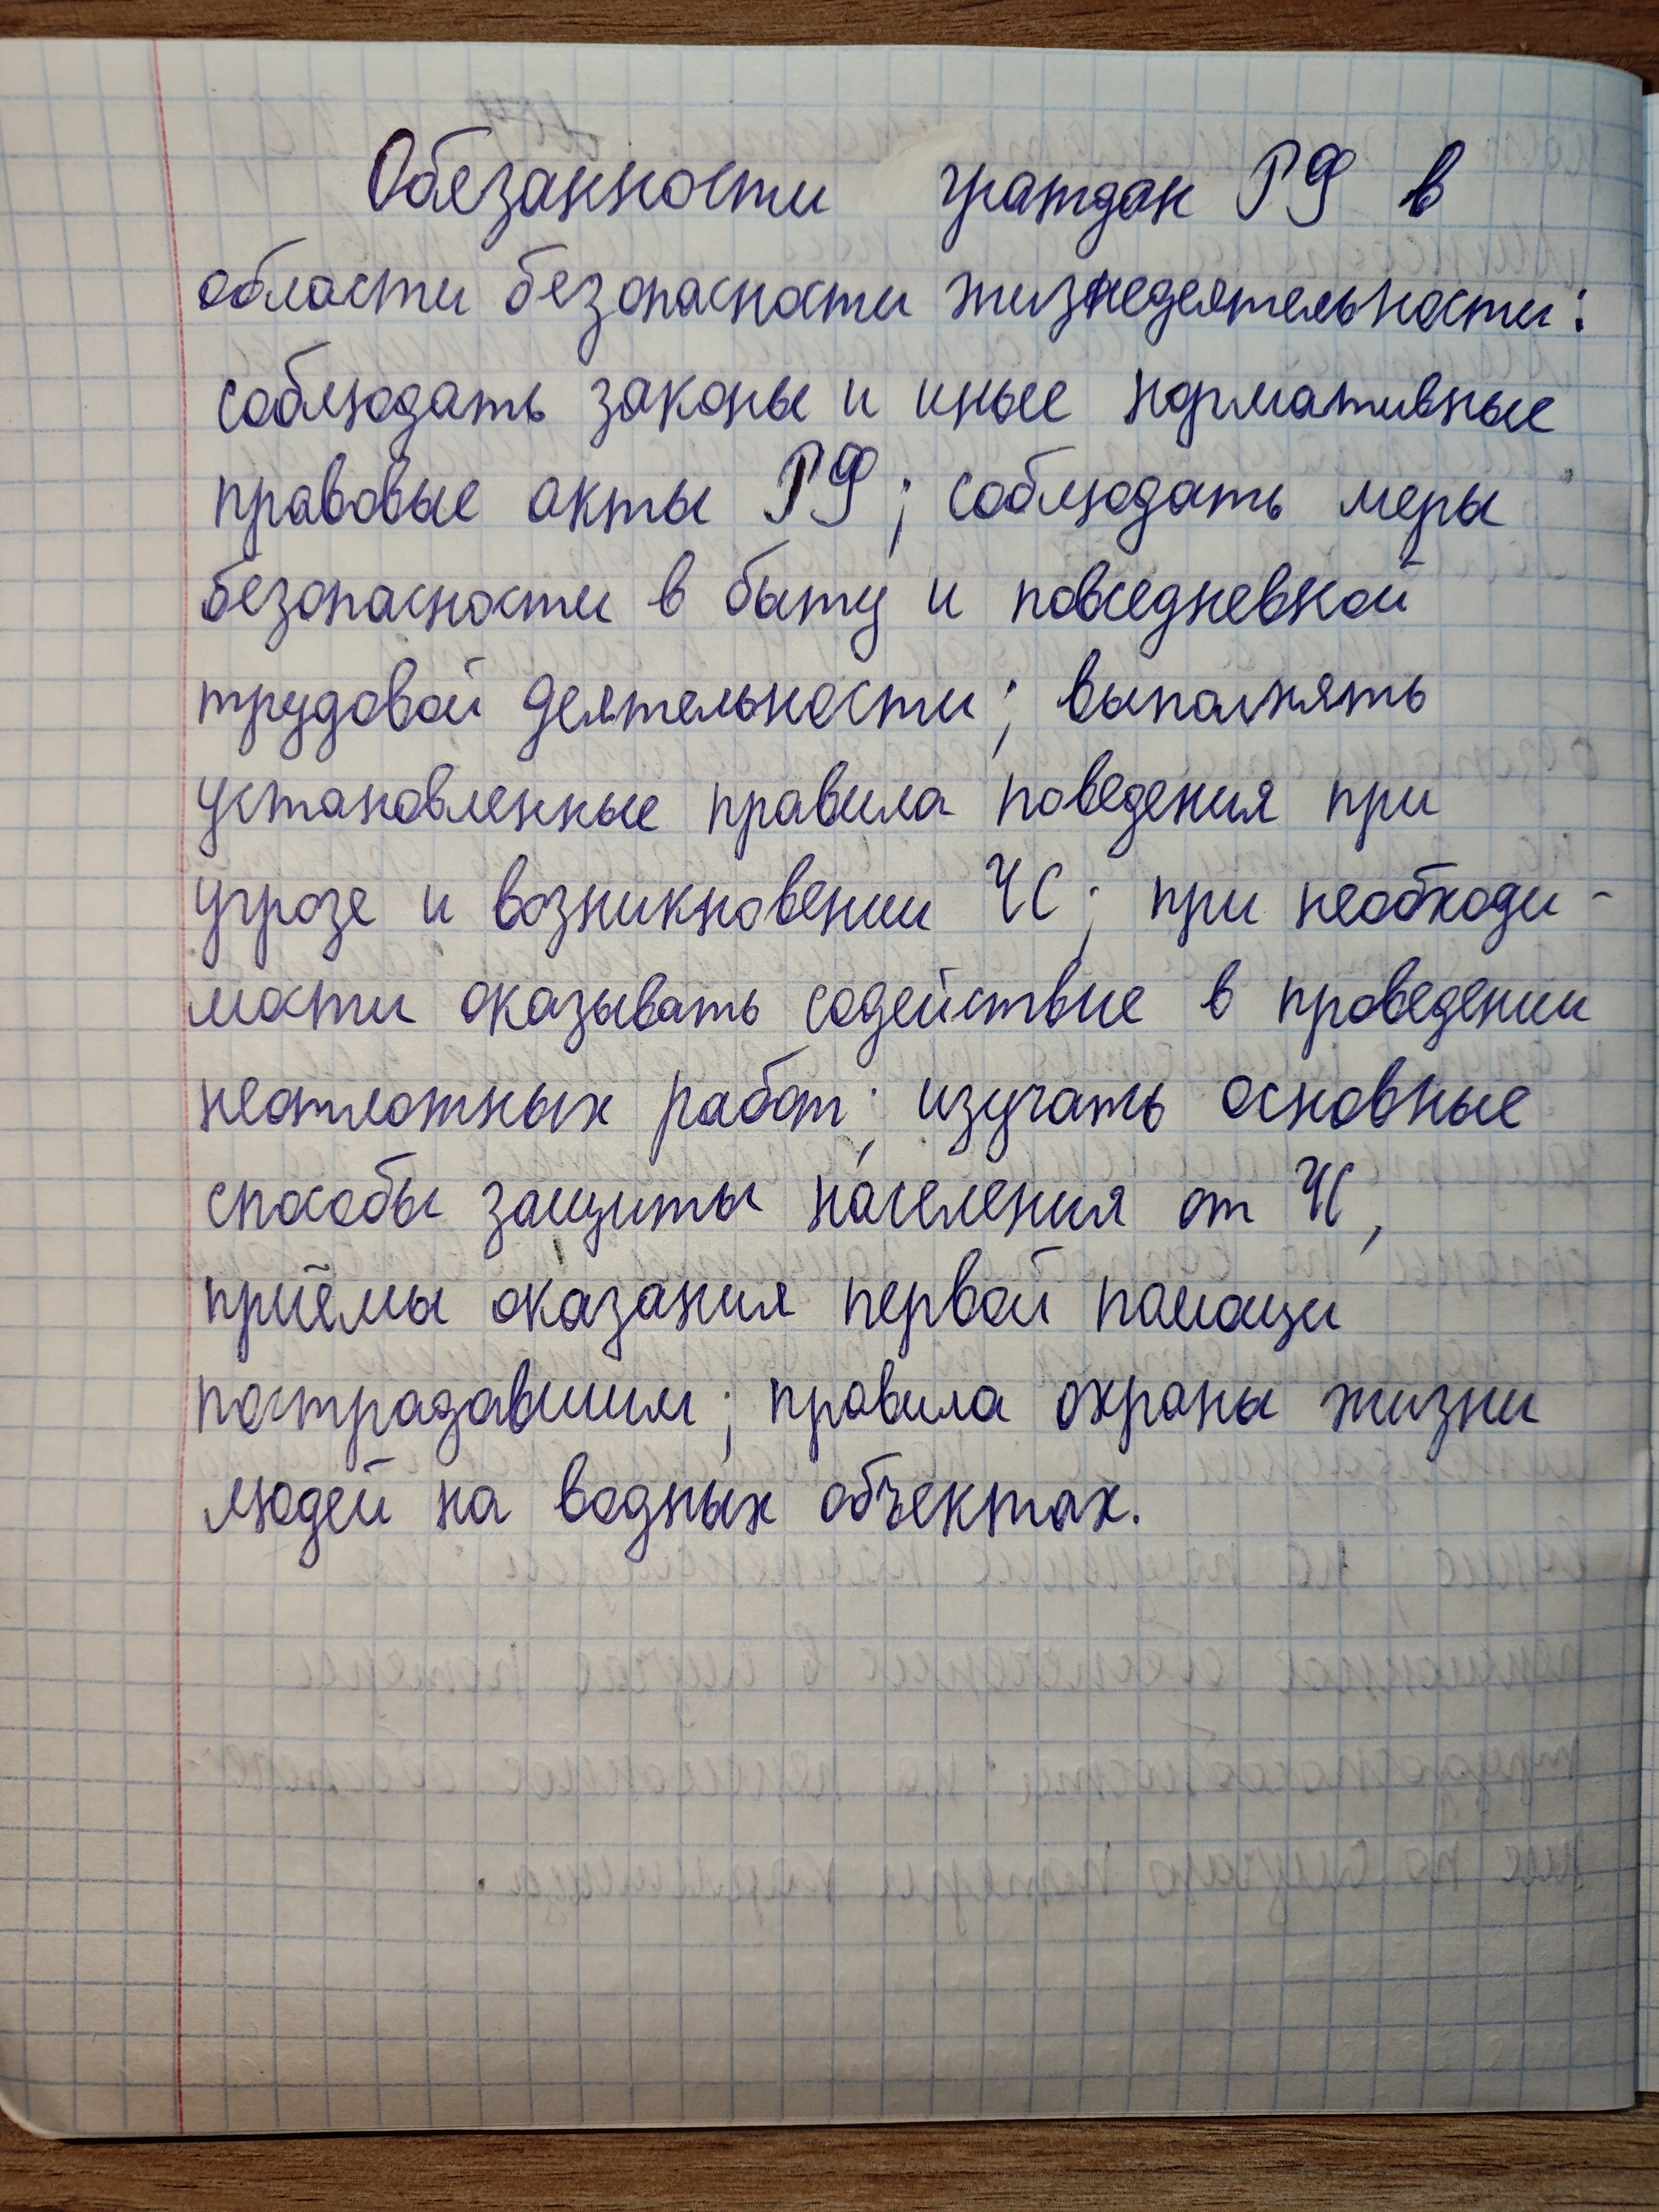 Обезанности граждан РФ в
области безопасности жизнедеятельности:
соблюдать законы и иные нормативные
правовые акты РФ; соблюдать меры
безопасности в быту и повседневной
трудовой деятельности; выполнять
установленные правила поведения при
угрозе и возникновении ЧС; при необходи-
мости оказывать содействие в проведении
неотложных работ; изучать основные
способы защиты населения от ЧС,
приёмы оказания первой помощи
пострадавшим; правила охраны жизни
людей на водных объектах.